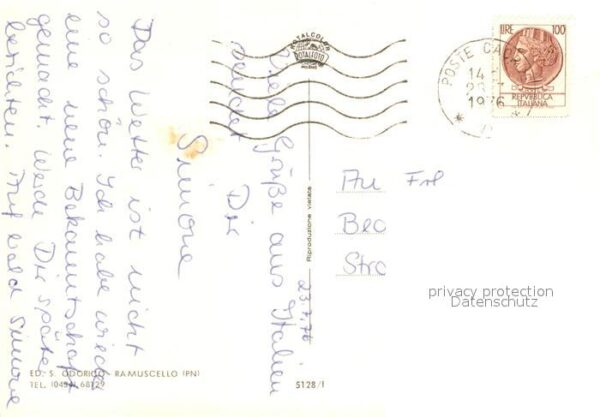 Viele Grüße aus Italien
sendet Dir
Simone
23.7.76
Das Wetter ist nicht
so schön. Ich habe wieder
eine neue Bekanntschaft
gemacht. Werde Dir später
berichten. Auf bald Simone
ROTALCOLOR
ROTALFOTO
MILANO
LIRE 100
REPVBBLICA
ITALIANA
POSTE
14
1976
An Frl
Riproduzione vietata
privacy protection
Datenschutz
ED. S. ODORICO - RAMUSCELLO (PN)
TEL. (0434) 68129
5128/I